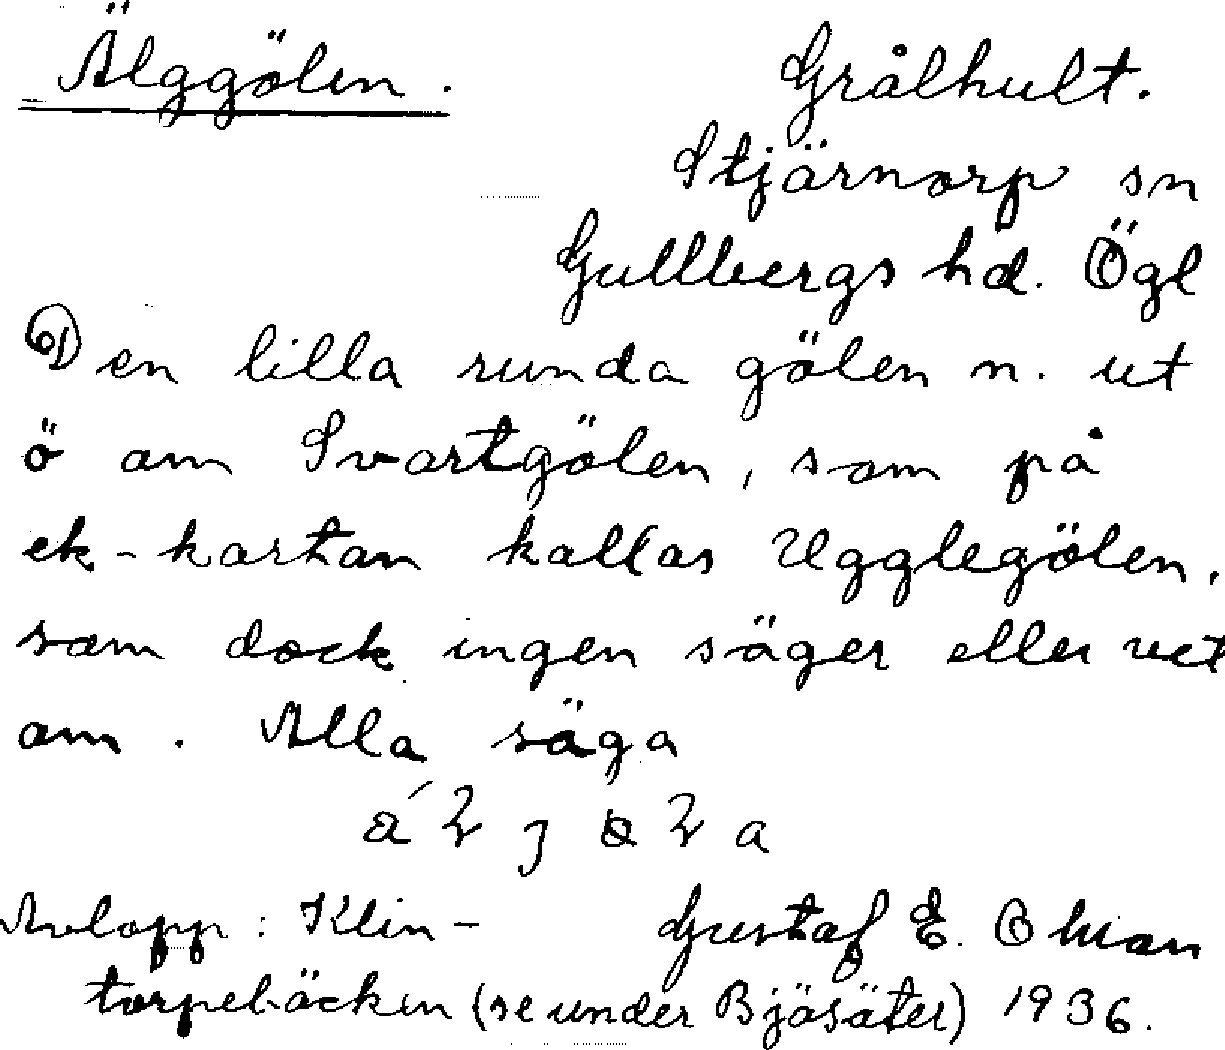 Älggölen.
Grålhult.
Stjärnorp sn
Gullbergs hd. Ögl
Den lilla runda gölen n. ut
ö om Svartgölen, som på
ek-kartan kallas Ugglegölen,
som dock ingen säger eller vet
om. Alla säga
Avlopp: Klin-
torpebäcken (se under Bjäsäter)
Gustaf E. Ohman
1936.